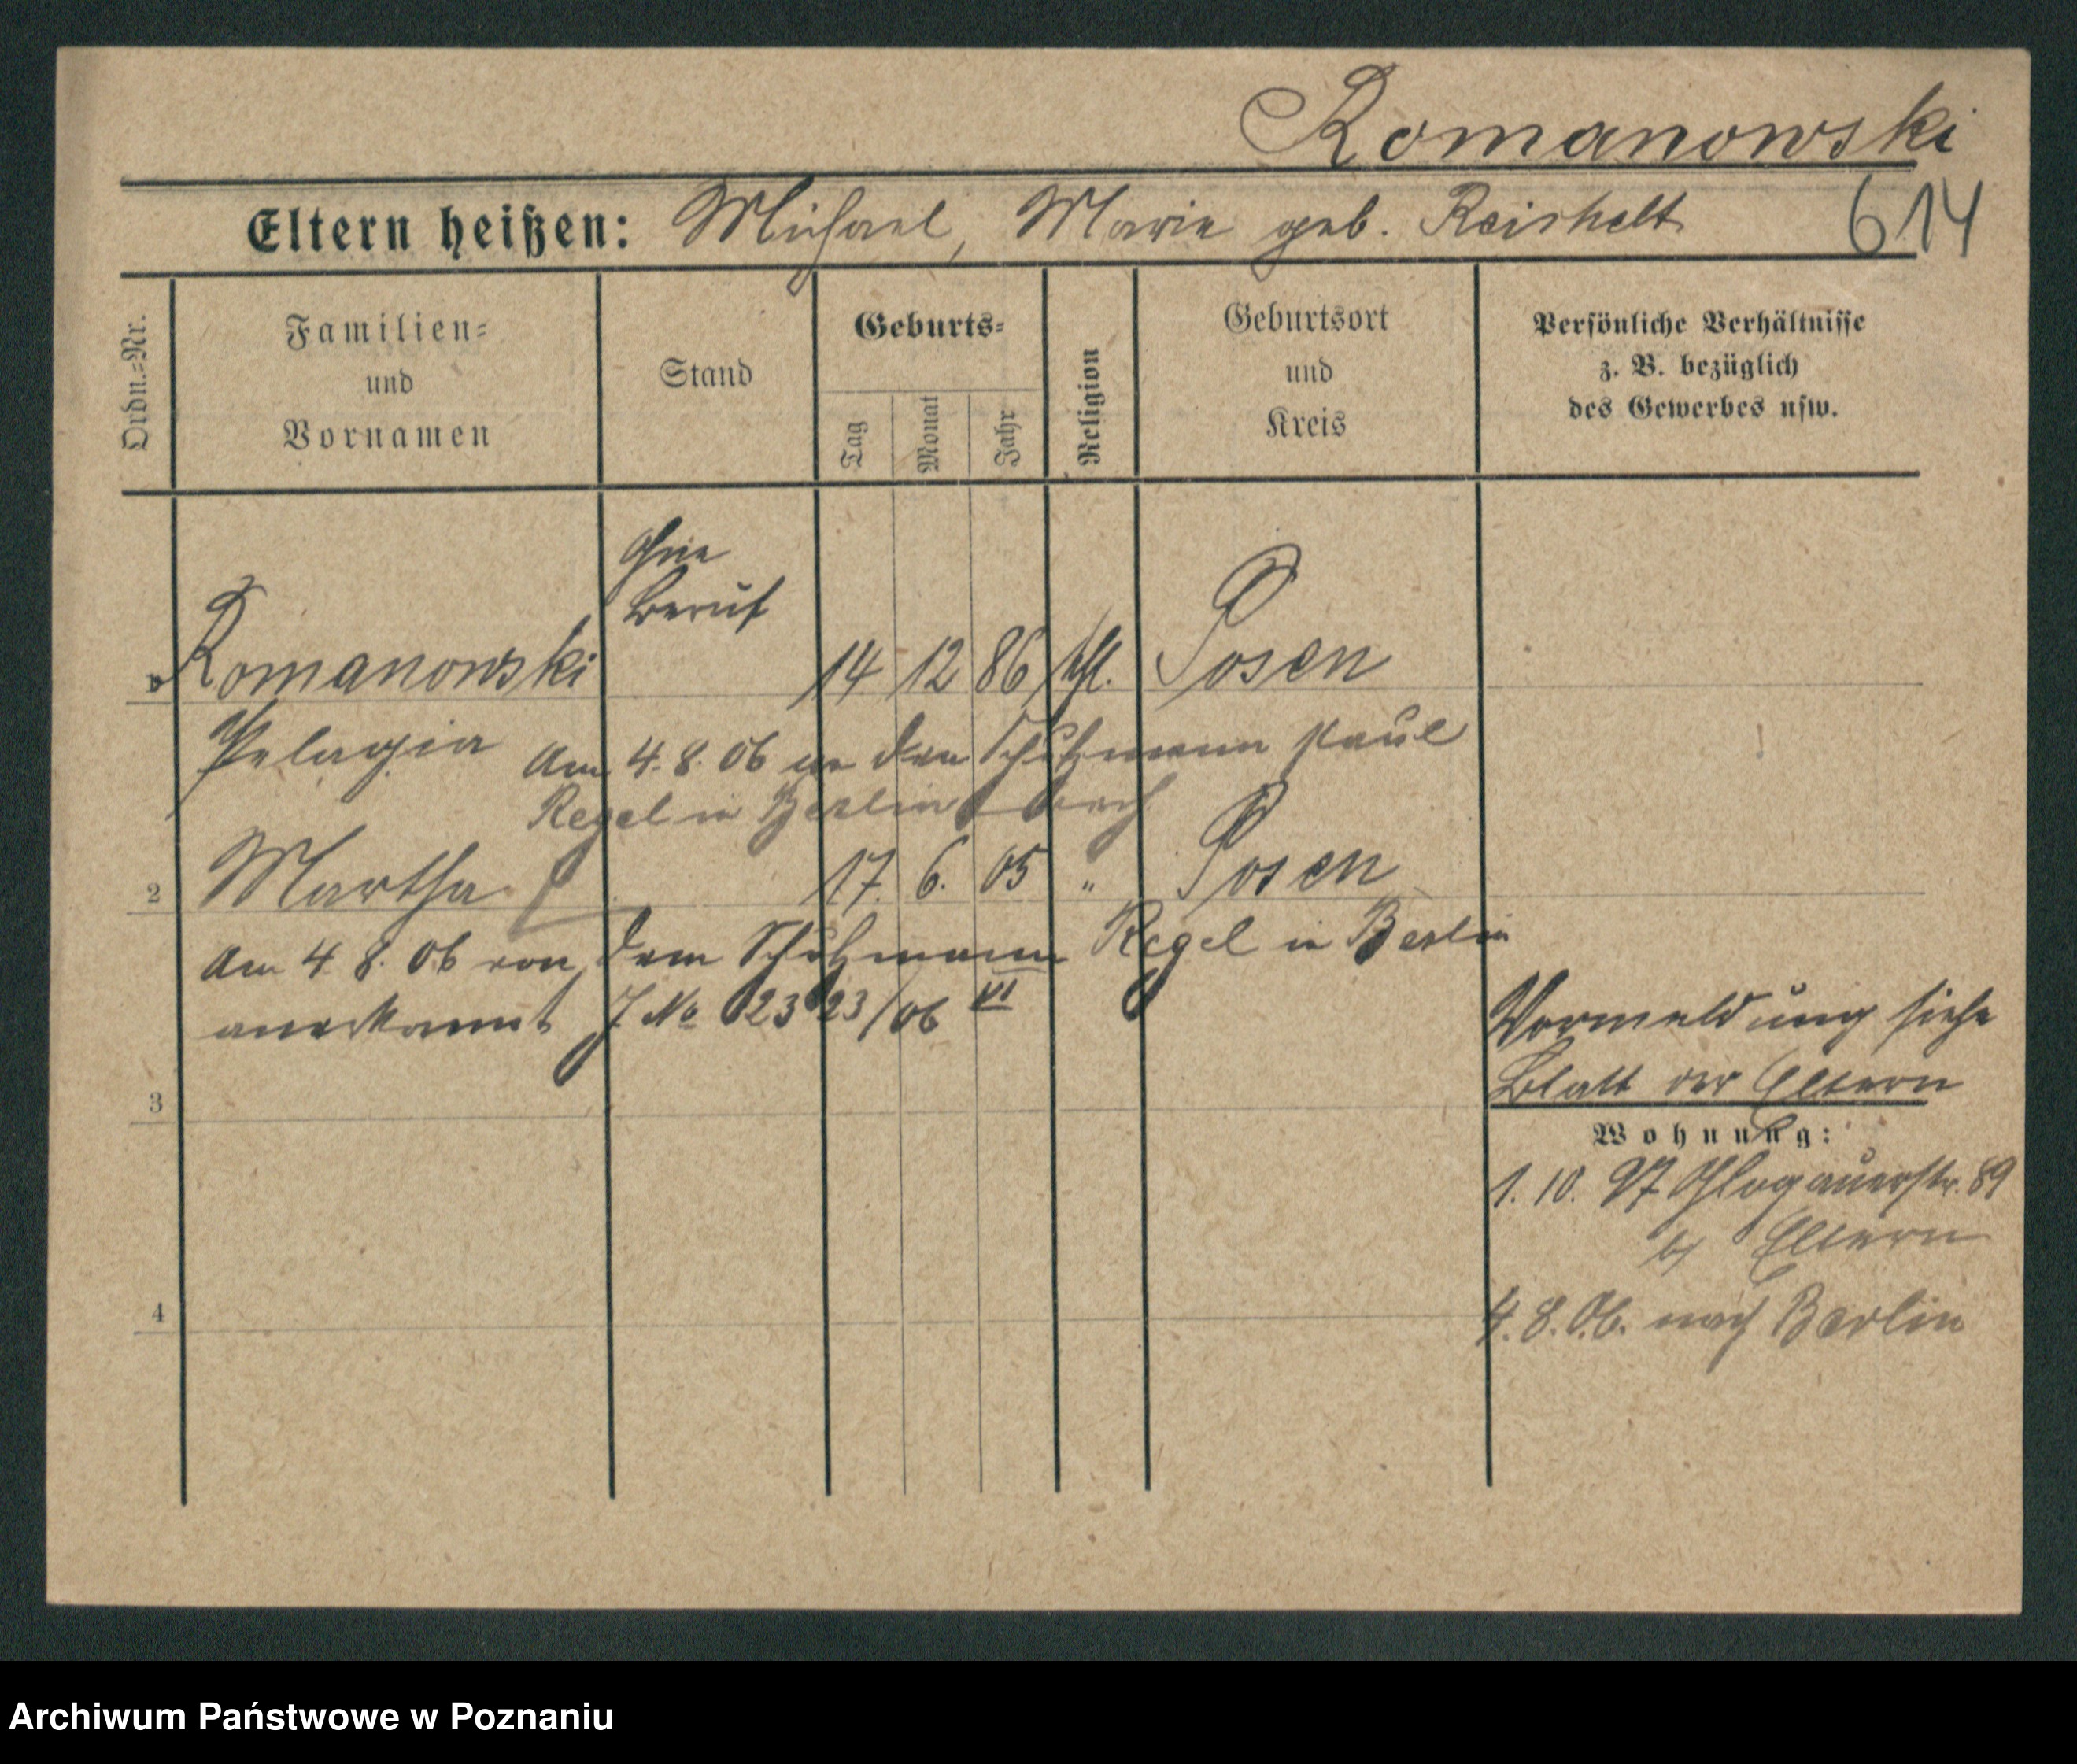 Romanowski
Eltern heißen: Michael, Marie geb. Reishelt 614
Ordn.-Nr.
Familien-
und
Vornamen
Stand
Geburts-
Tag
Monat
Jahr
Religion
Geburtsort
und
Kreis
Persönliche Verhältnisse
z. B. bezüglich
des Gewerbes usw.
Ohne
Beruf
Romanowski 14 12 86 kth. Posen
Pelagia
Am 4. 8. 06 an den Schutzmann Paul
Regel in Berlin
2 Martha 17. 6. 05 " Posen
Am 4. 8. 06 von dem Schutzmann Regel in Berlin
anerkannt J No 2323/06 VI
Vormeldung siehe
Blatt der Eltern
3
Wohnung:
1. 10. 97 Glogauerstr. 89
b/ Eltern
4
4. 8. 06. nach Berlin
Archiwum Państwowe w Poznaniu